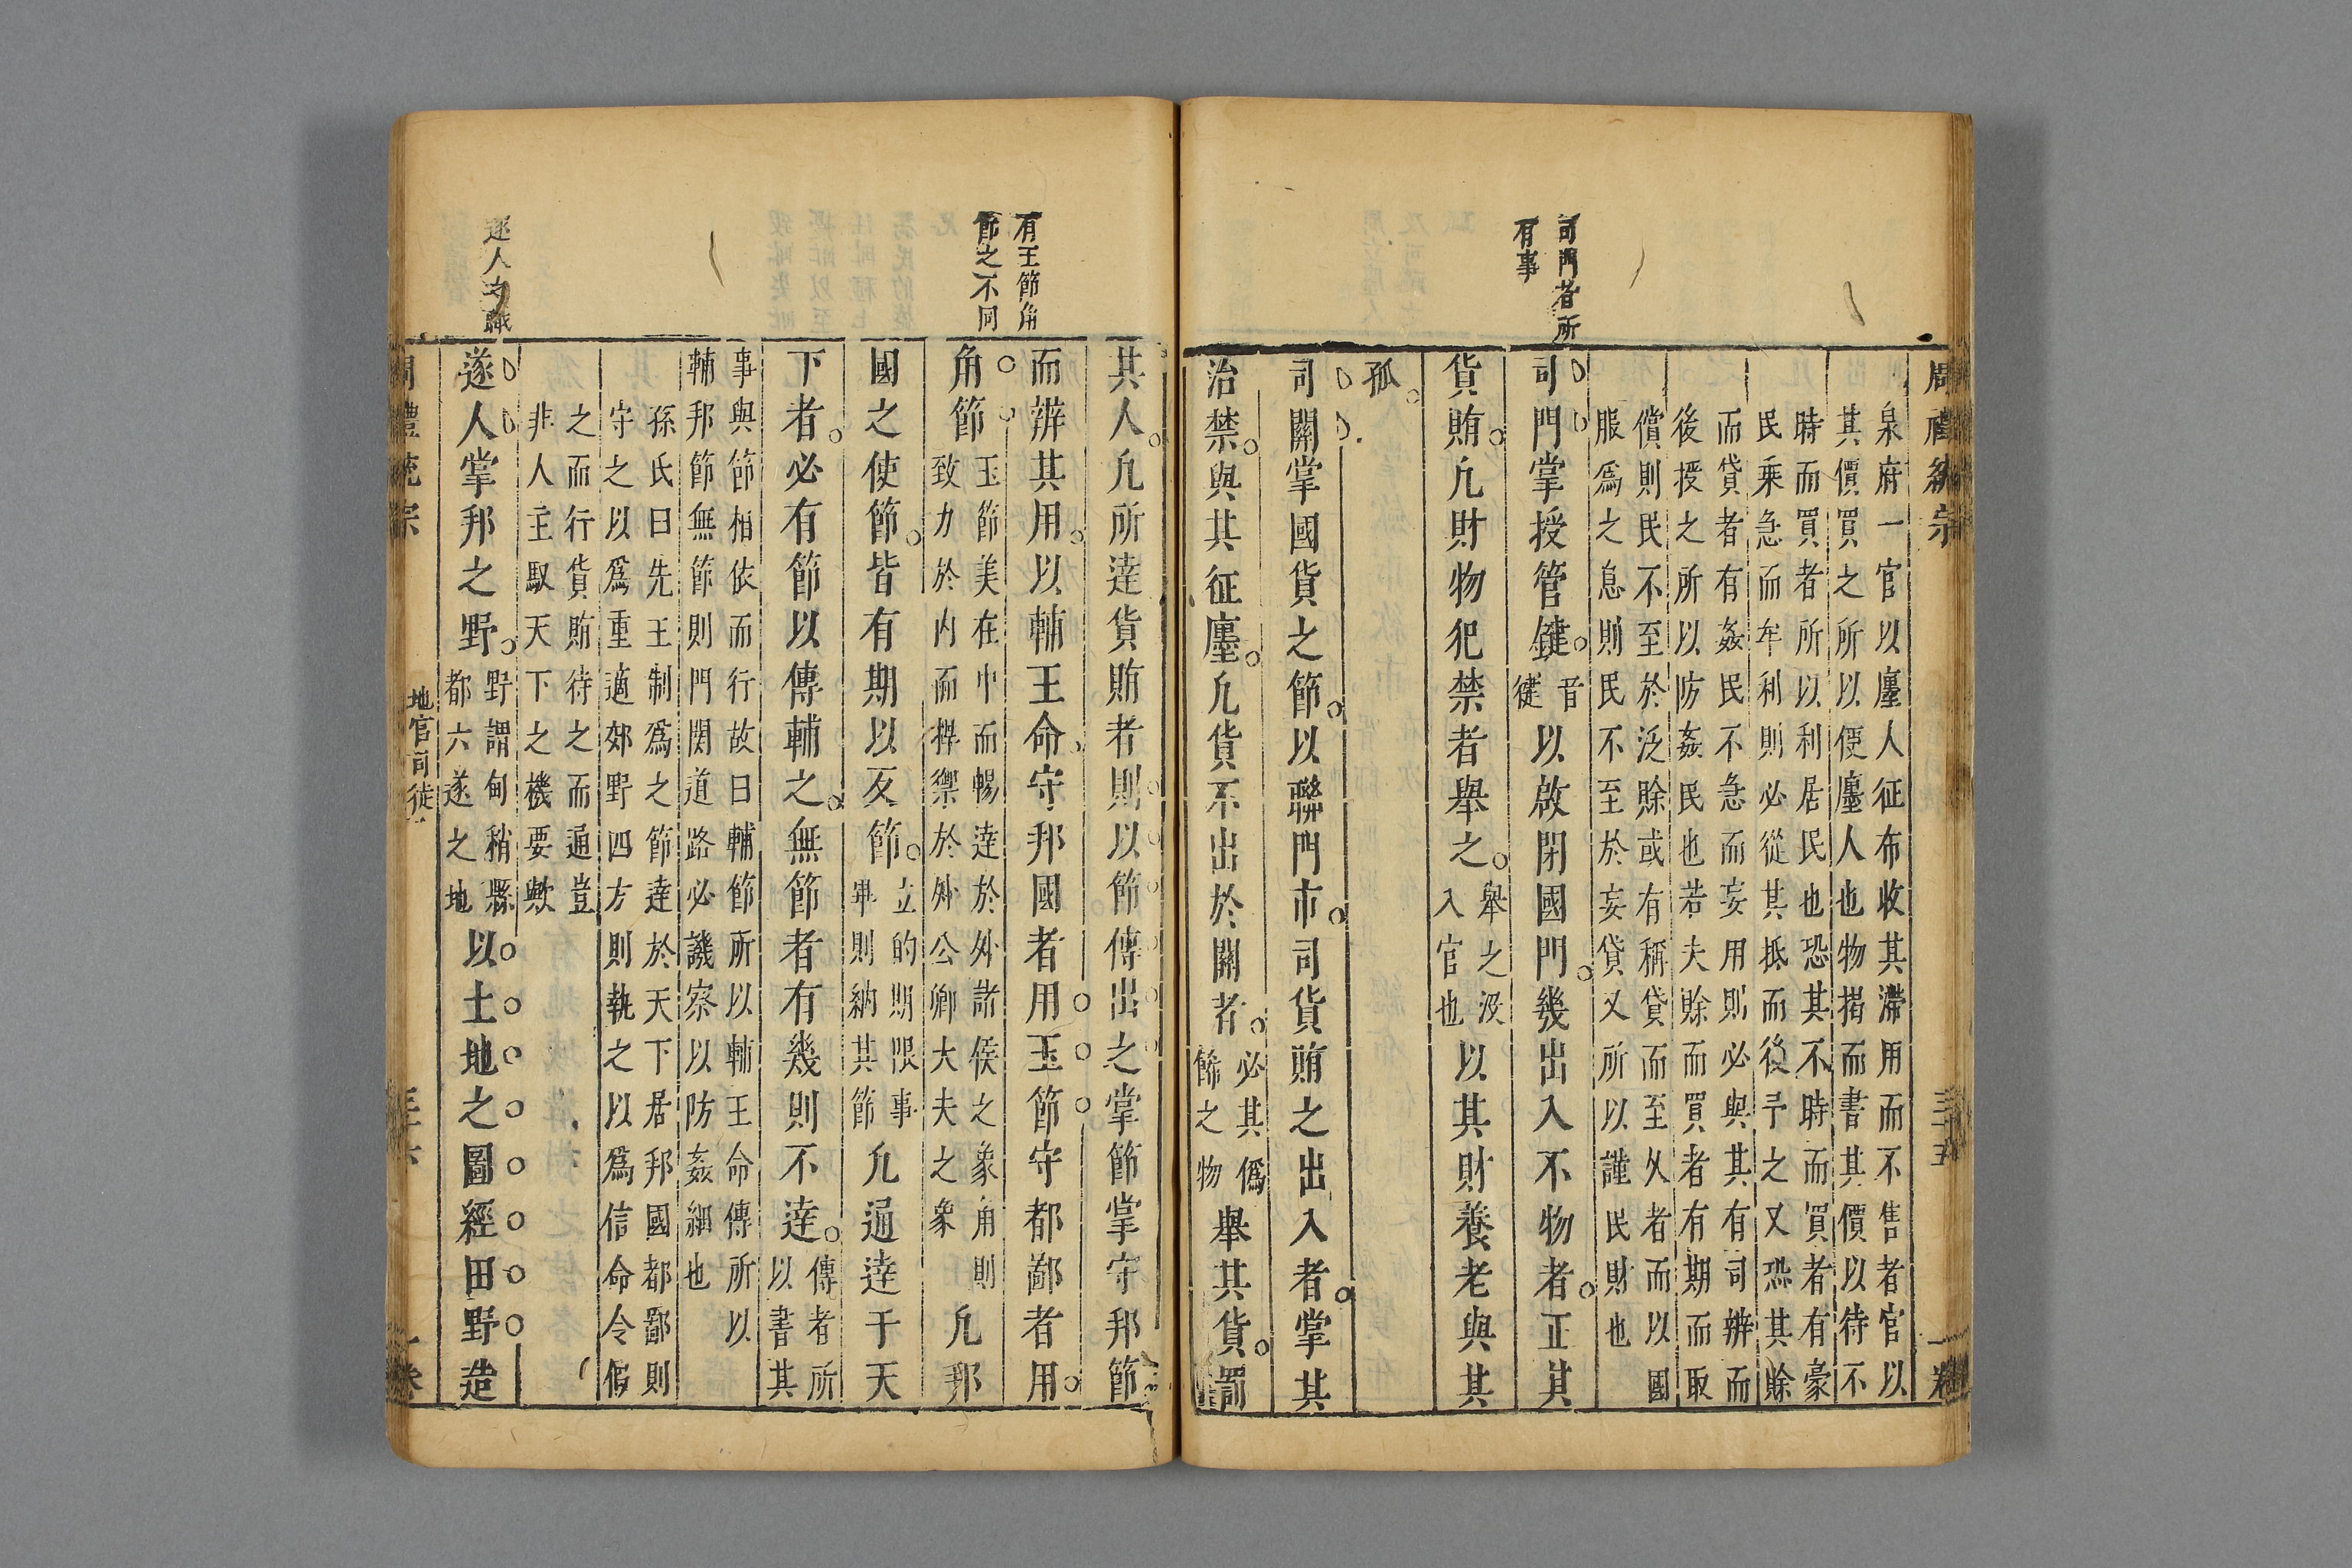 周禮統宗
三十五
一卷
司門者所
有事
泉府一官以廛人征布收其滯用而不售者官以
其價買之所以便廛人也物揭而書其價以待不
時而買者所以利居民也恐其不時而買者有豪
民乘急而牟利則必從其抵而後予之又恐其賖
而貸者有姦民不急而妄用則必與其有司辨而
後授之所以防姦民也若夫賖而買者有期而取
償則民不至於泛賖或有稱貸而至久者而以國
服爲之息則民不至於妄貸又所以謹民財也
司門掌授管鍵音徤以啟閉國門幾出入不物者正其
貨賄凢財物犯禁者舉之舉之没入官也以其財養老與其
孤
司關掌國貨之節以聯門市司貨賄之出入者掌其
治禁與其征廛凢貨不出於關者必其僞餙之物舉其貨罰
有王節角
節之不同
遂人之職
其人凢所達貨賄者則以節傳出之掌節掌守邦節
而辨其用以輔王命守邦國者用玉節守都鄙者用
角節玉節美在中而暢達於外諸侯之象角則致力於内而捍禦於外公卿大夫之象凢邦
國之使節皆有期以反節立的期限事畢則納其節凢通達于天
下者必有節以傳輔之無節者有幾則不達傳者所以書其
事與節相依而行故曰輔節所以輔王命傳所以
輔邦節無節則門関道路必譏察以防姦細也
孫氏曰先王制爲之節達於天下居邦國都鄙則
守之以爲重適郊野四方則執之以爲信命令假
之而行貨賄待之而通豈
非人主馭天下之機要歟
遂人掌邦之野野謂甸稍縣都六遂之地以土地之圖經田野造
周禮統宗
地官司徒
三十六
一卷